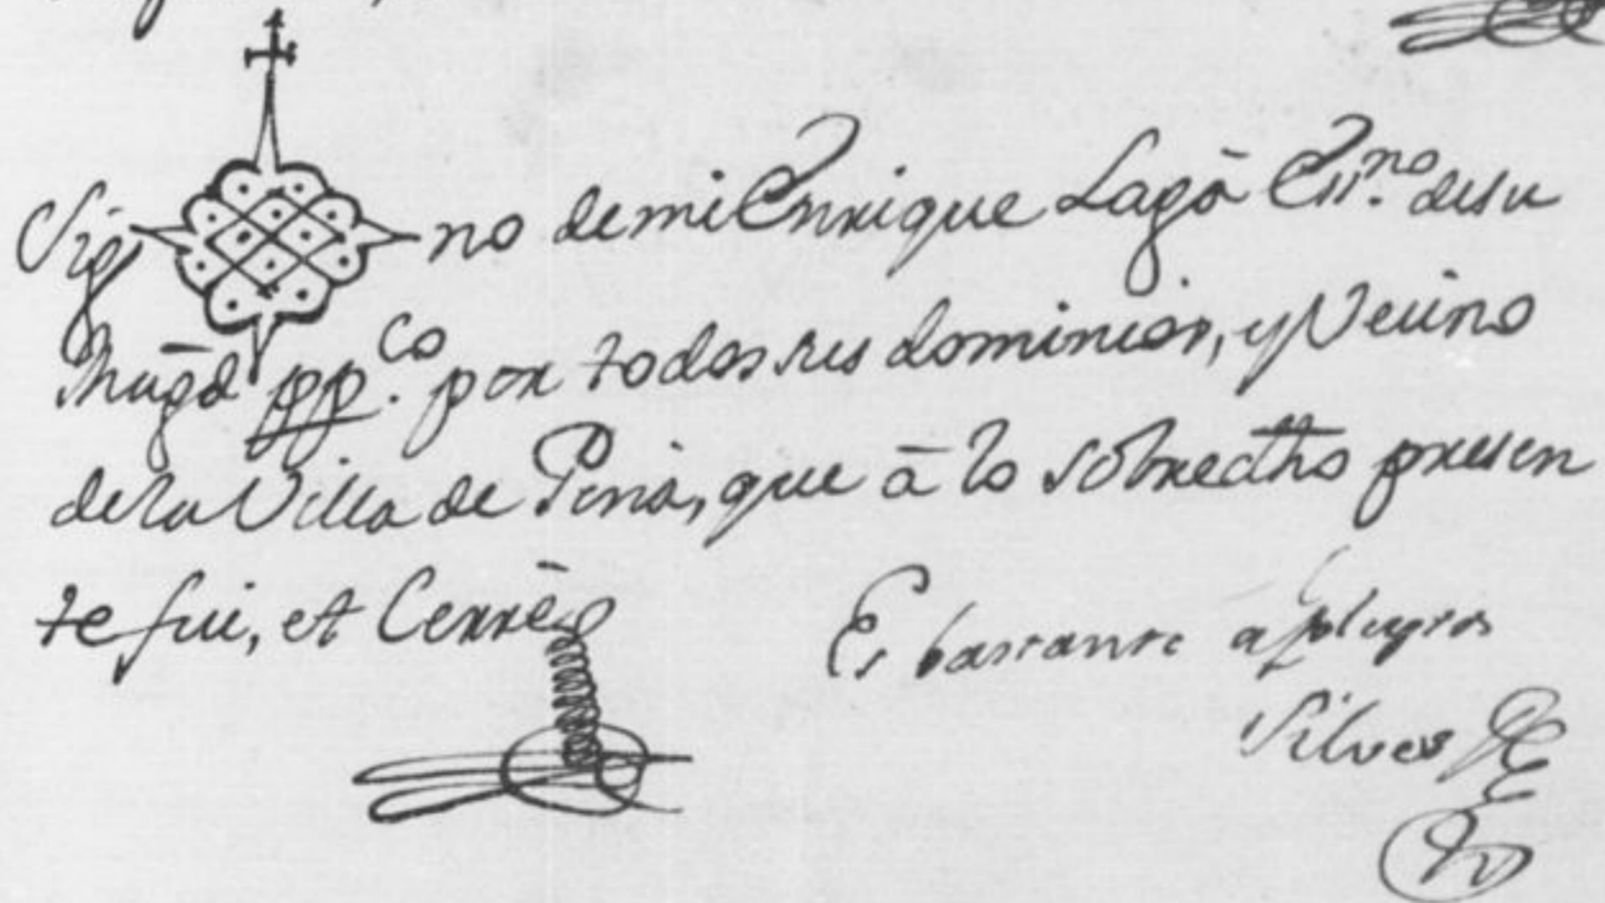 Sig no de mi Enrique Lagā Essno. de su
Magd ppco. por todos sus dominios, y Vecino
de la Villa de Pina, que ā lo sobredtho presen
te fui, et Cerrē
Es bastante a pleytos
Silves